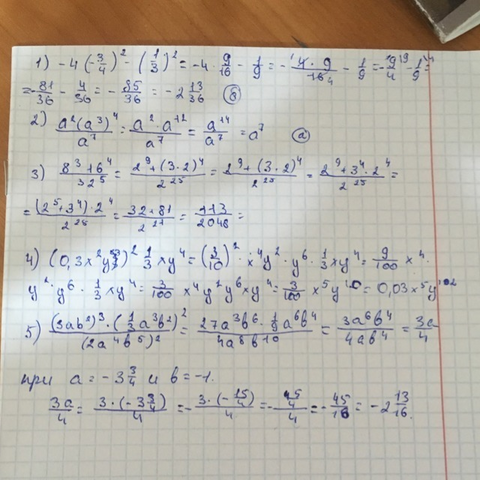 1) -4(-3/4)² - (1/3)² = -4 · 9/16 - 1/9 = - 4·9/16 4 - 1/9 = - 9/4 - 1/9 =
= - 81/36 - 4/36 = - 85/36 = -2 13/36 (б)
2) a²(a³)⁴/a⁷ = a²·a¹²/a⁷ = a¹⁴/a⁷ = a⁷ (а)
3) 8³+6⁴/32⁵ = 2⁹+(3·2)⁴/2²⁵ = 2⁹+(3·2)⁴/2²⁵ = 2⁹+3⁴·2⁴/2²⁵ =
= (2⁵+3⁴)·2⁴/2²⁵ = 32+81/2²¹ = 113/2048 =
4) (0,3x²y)² · 1/3 xy⁴ = (3/10)² · x⁴y² · y⁶ · 1/3 xy⁴ = 9/100 x⁴ ·
y² · y⁶ · 1/3 xy⁴ = 3/100 x⁴y²y⁶xy⁴ = 3/100 x⁵y = 0,03x⁵y¹²
5) (3ab²)³ · (1/3 a³b²)²/(2a⁴b⁵)² = 27a³b⁶ · 1/9 a⁶b⁴/4a⁸b¹⁰ = 3a⁶b⁴/4ab⁴ = 3a/4
при a = -3 3/4 и b = -1.
3a/4 = 3·(-3 3/4)/4 = - 3·(-15/4)/4 = - 45/4/4 = - 45/16 = -2 13/16.